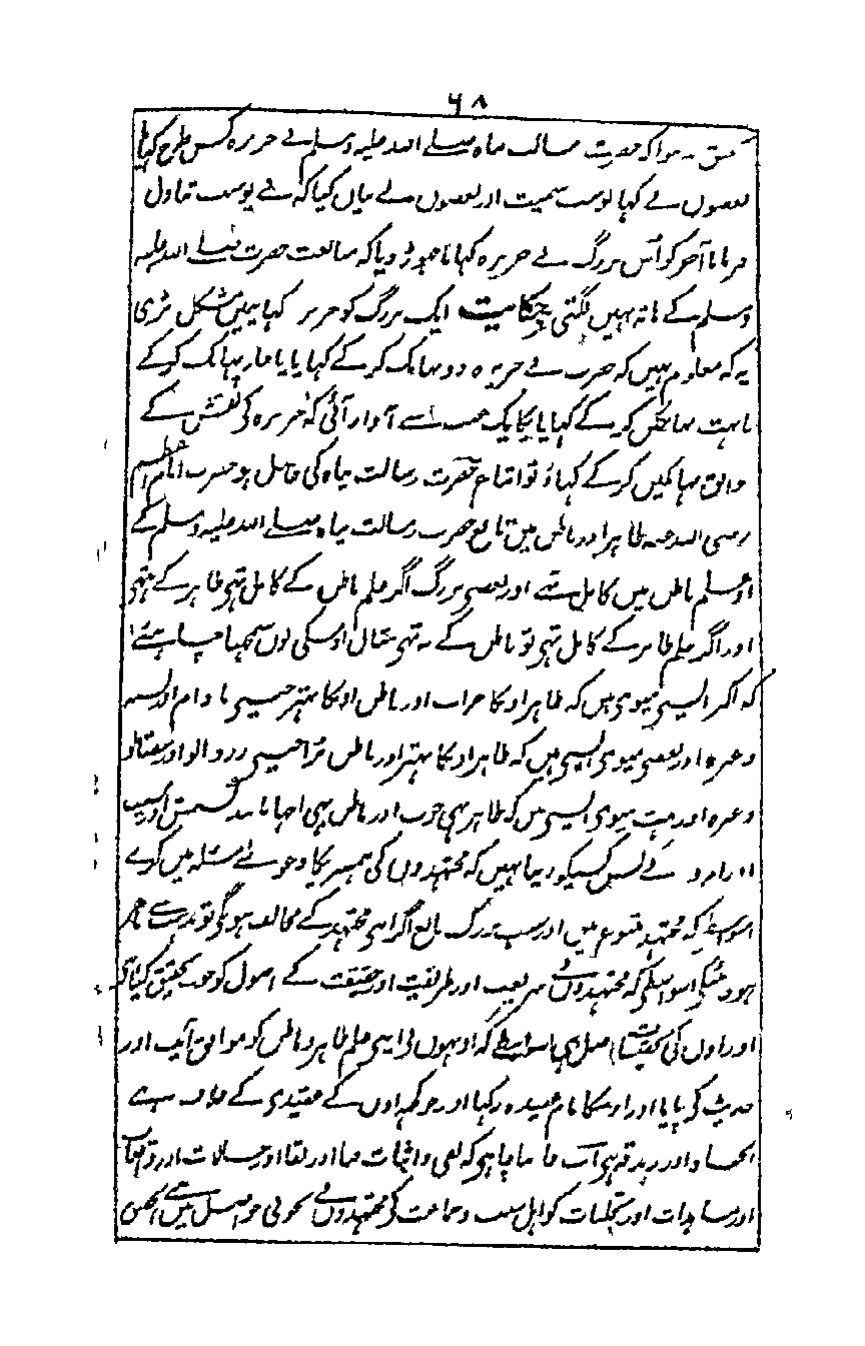 ۶۸
یہ ہوا کہ حضرت رسالت پناہ صلے اللہ علیہ وسلم نے خربزہ کس طرح کہایا
بعضوں نے کہا پوست سمیت اور بعضوں نے بیاں کیا کہ بے پوست تناول
فرمایا آخر کو اُس بزرگ نے خربزہ کہانا چھوڑ دیا کہ متابعت حضرت صلے اللہ علیہ
وسلم کے ہاتہ نہیں لگتی حکایت ایک بزرگ کو خربزہ کہانیمیں مشکل پڑی
یہ کہ معلوم نہیں کہ حضرت نے خربزہ دو پہانک کر کے کہایا یا چار پہانک کر کے
یا بہت پہانکیں کر کے کہایا یکایک غیب سے آواز آئی کہ خربزہ کی نقش کے
موافق پہانکیں کر کے کہاؤ تو اتباع حضرت رسالت پناہ کی حاصل ہو حضرت امام اعظم
رضی اللہ عنہ ظاہر اور باطن میں تابع حضرت رسالت پناہ صلے اللہ علیہ وسلم کے
اور علم باطن میں کامل تہے اور بعضی بزرگ اگر علم باطن کے کامل تہی ظاہر کے نتہی
اور اگر علم ظاہر کے کامل تہی تو باطن کے نہ تہی مثال اوسکی یوں سمجہا چاہئے
کہ اکثر ایسی میوی ہیں کہ ظاہر اونکا خراب اور باطن اونکا بہتر جیسی بادام اور پستہ
وغیرہ اور بعضی میوی ایسی ہیں کہ ظاہر اونکا بہتر اور باطن بُرا جیسی زرد الو اور شفتالو
وغیرہ اور بہت میوی ایسی ہیں کہ ظاہر بہی خوب اور باطن بہی اچہا مانند کشمش اور سیب
اور امرود کے پس کسیکو زیبا نہیں کہ مجتہدوں کی ہمسریکا دعوے مسئلہ میں کرے
اسواسطے کہ مجتہد متبوع ہیں اور سب بزرگ تابع اگر اپنی مجتہد کے مخالف ہوگی تو مذہب سے باہر
ہو وینگی اسواسطی کہ مجتہدوں نے شریعت اور طریقت اور حقیقت کے اصول کو خوب تحقیق کیا ہے کہ
اور اوں کی تحقیقات اصل ہی اسواسطے کہ اونہوں نی اپنی علم ظاہر و باطن کو موافق آیت اور
حدیث کی پایا اور اوسکا نام عقیدہ رکہا اور جو کچہ اوں کے عقیدی کے خلاف ہے
الحاد اور زندقہ ہی اب جاننا چاہی کہ نفی و اثبات فنا اور لقا اور حالات اور واقعات
اور مشاہدات اور تجلیات کو اہل سنت و جماعت کی مجتہدوں نے بخوبی حاصل